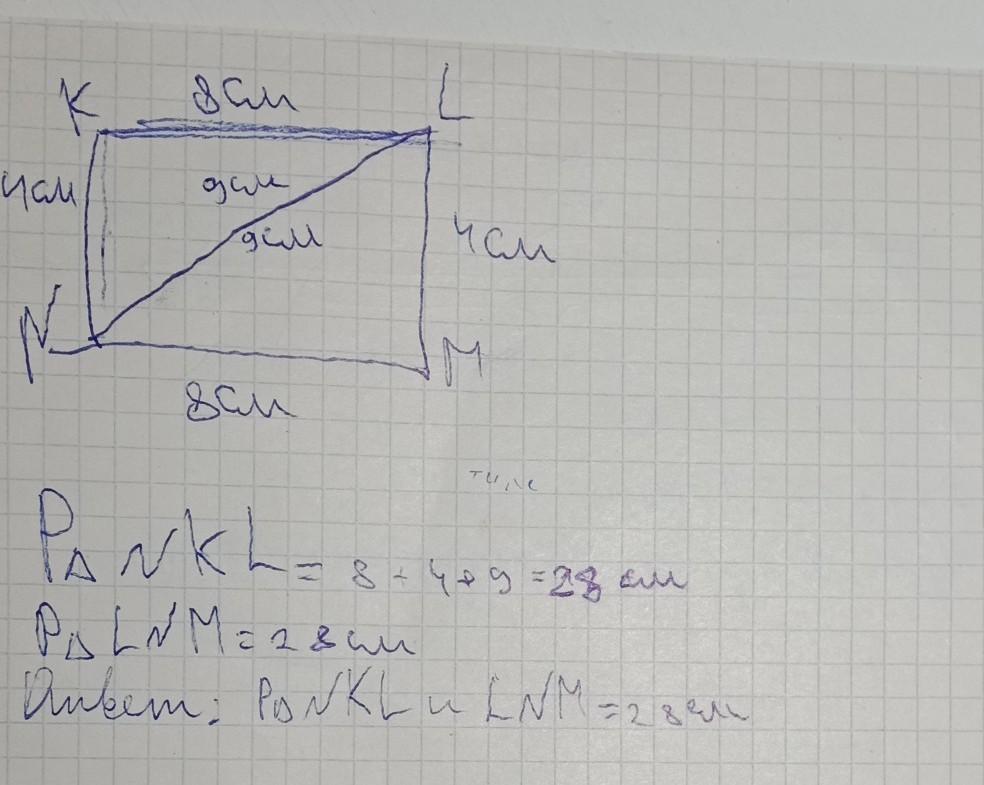 K 8см L
4см 9см
9см 4см
N M
8см
P△NKL = 8 + 4 + 9 = 28 см
P△LNM = 28 см
Ответ: P△NKL и LNM = 28 см